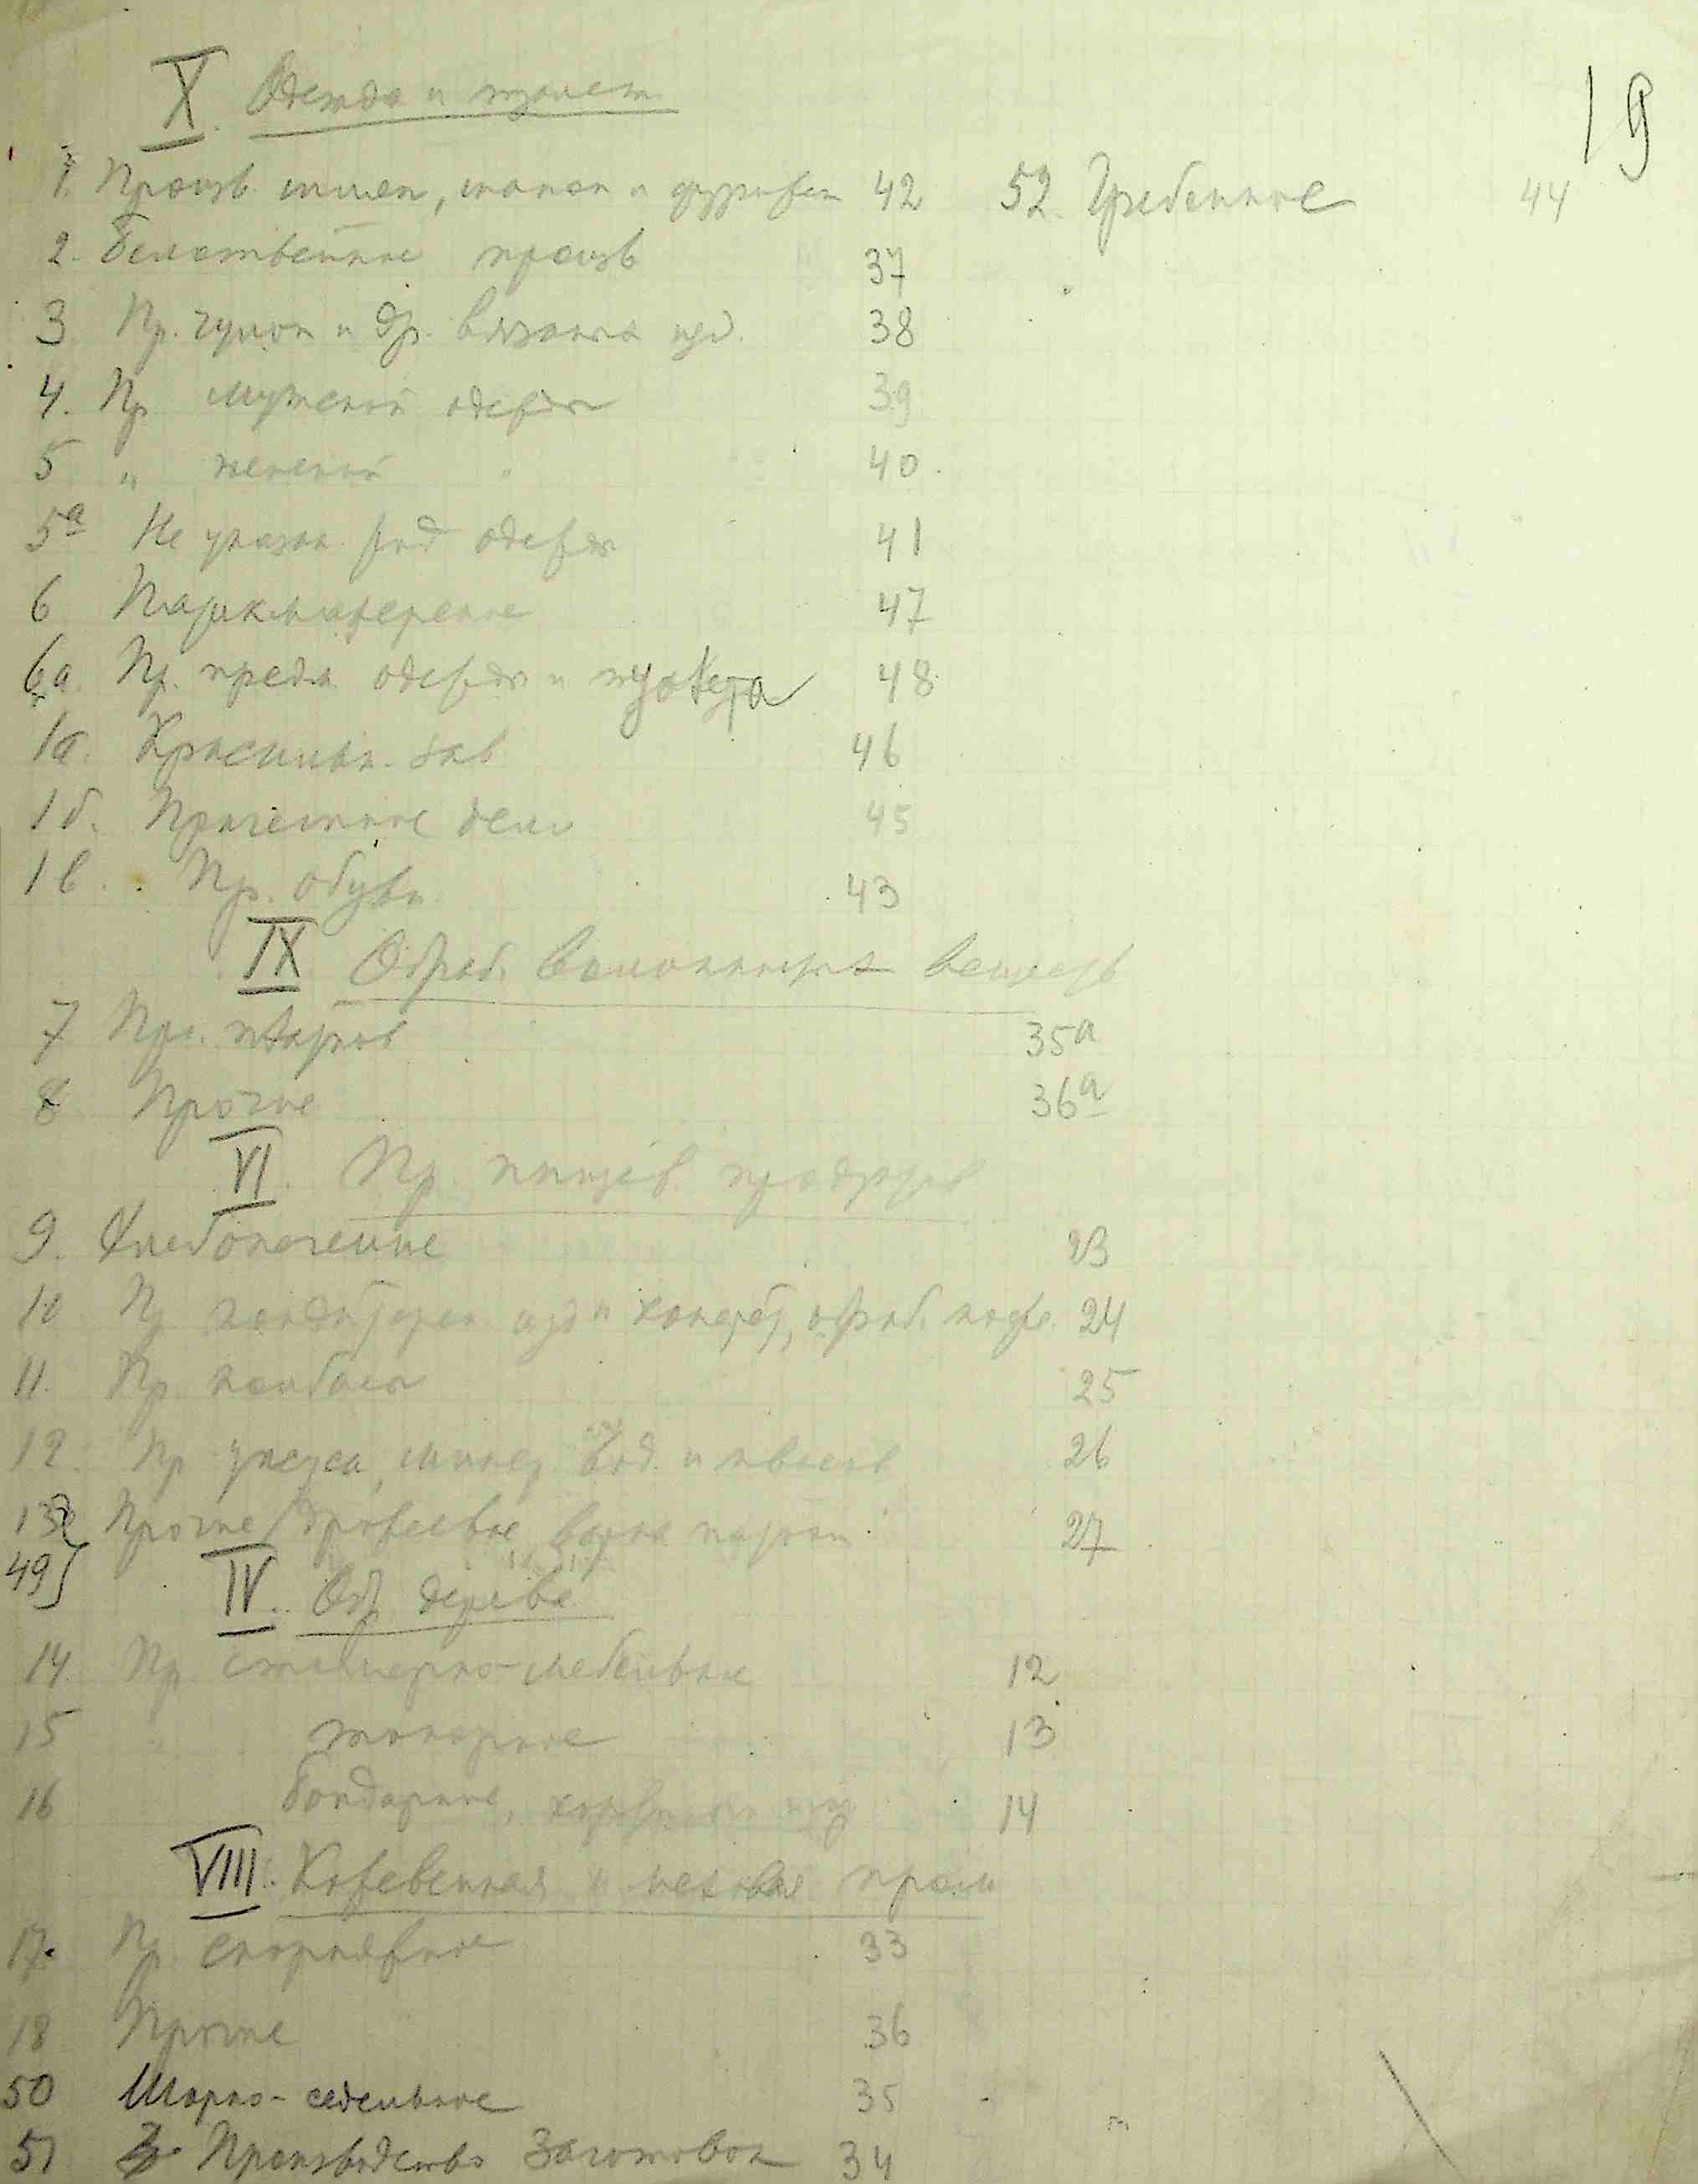 19
X. Одежда и туалет
1. Произв. шляп, шапок и фуражек 42
52. Гребенное 44
2. Белошвейное произв 37
3 Пр. чулок и др. вязаных изд. 38
4. Пр. мужской одежды 39
5 " женской " 40
5а Не указан. род одежды 41
6 Парикмахерские 47
6а. Пр. предм. одежды и туалета 48
1а. Красильн. зав 46
1б. Прачешное дело 45
1в. Пр. обуви 43
IX Обраб. волокнистых веществ
7 Про. 35а
8 Прочие 36а
VI. Пр. пищев. продуктов
9. Хлебопечение 23
10 Пр кондитерск. изд и конфет, обраб. кофе. 24
11. Пр колбасы 25
12. Пр уксуса, минер. вод. и квасов 26
13 Прочие 27
49
IV. Обр. дерева
14. Пр. столярно-мебельное 12
15 " токарное 13
16 бондарное, 14
VIII. Кожевенная и меховая пром
17. Пр. скорняжное 33
18 Прочие 36
50 Шорно-седельное 35
51 Производство Заготовок 34